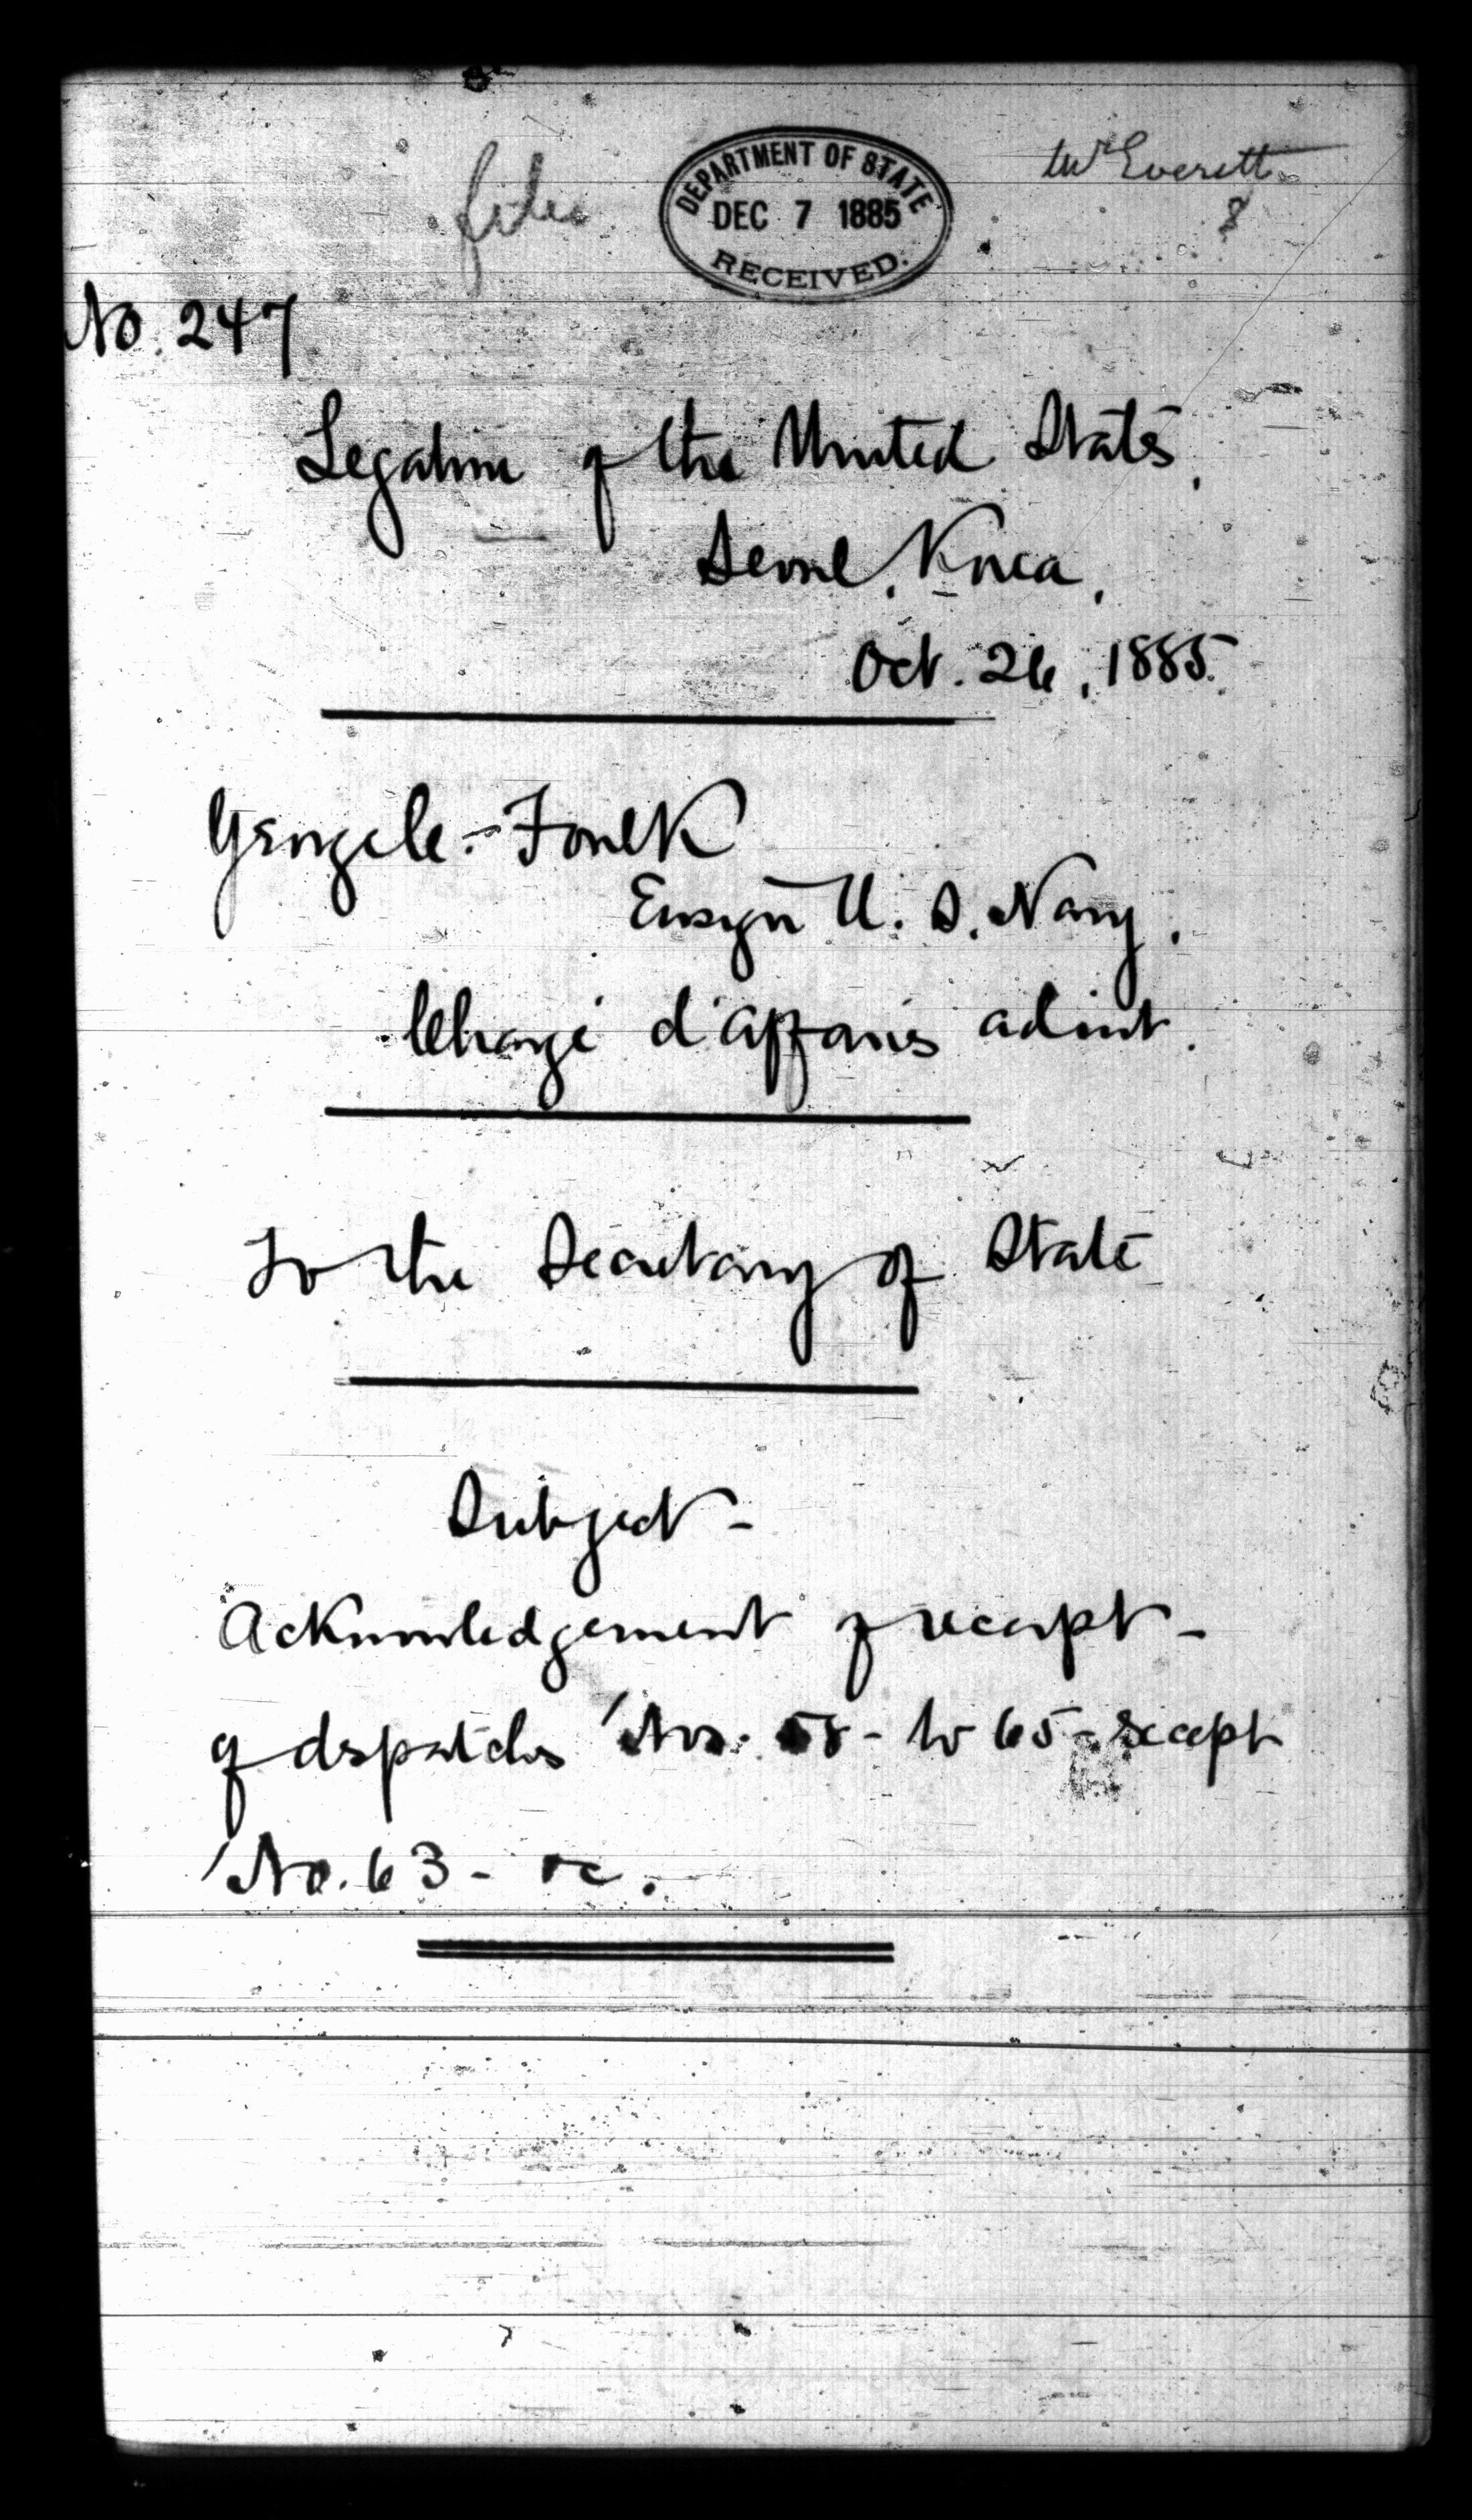 file
DEPARTMENT OF STATE
DEC 7 1885
RECEIVED.
Mr Everett
8
No. 247
Legation of the United States,
Seoul, Korea,
Oct. 26, 1885.
George C. Foulk
Ensign U. S. Navy,
Chargé d'affaires ad int.
To the Secretary of State
Subject -
Acknowledgement of receipt -
of dispatches Nos. 58 - to 65 - except
No. 63 - &c.